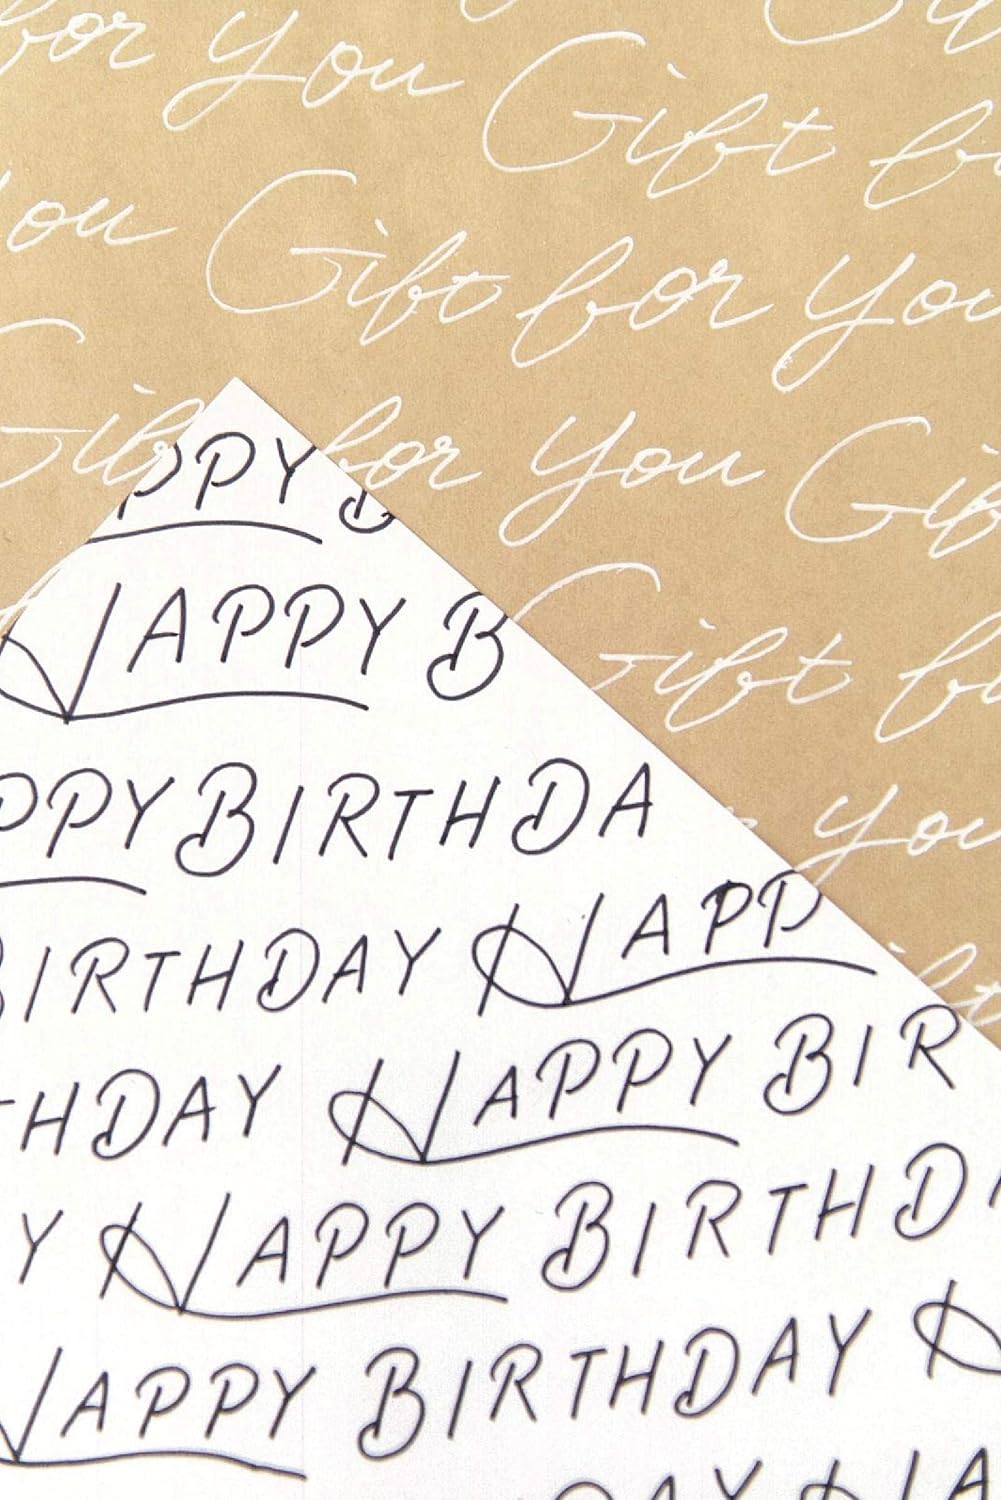 for you Gift for
you Gift for you
Gift for you Gift
PPY B
HAPPY B
Gift for
PPY BIRTHDA
you
BIRTHDAY HAPP
THDAY HAPPY BIR
Y HAPPY BIRTHD
HAPPY BIRTHDAY
AY HA